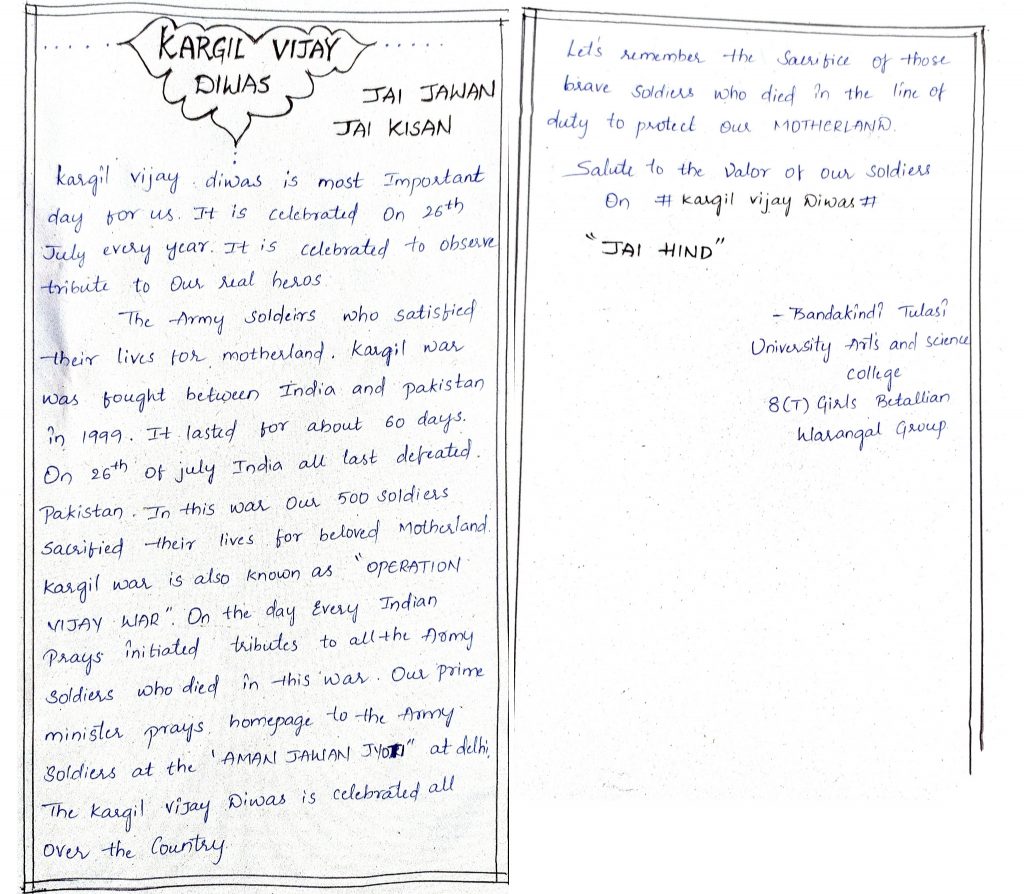 KARGIL VIJAY
DIWAS
JAI JAWAN
JAI KISAN
kargil vijay diwas is most Important
day for us. It is celebrated On 26th
July every year. It is celebrated to observe
tribute to Our real heros.
The Army Soldeirs who satisfied
their lives for motherland. Kargil war
was fought between India and pakistan
in 1999. It lasted for about 60 days.
On 26th of july India all last defeated.
Pakistan. In this war Our 500 Soldiers
Sacrified their lives for beloved Motherland.
Kargil war is also known as "OPERATION
VIJAY WAR". On the day Every Indian
Prays initiated tributes to all the Army
Soldiers who died in this war. Our prime
minister prays homepage to the Army
Soldiers at the 'AMAN JAWAN JYOTI" at delhi,
The Kargil Vijay Diwas is celebrated all
Over the Country.
Let's remember the Sacrifice of those
brave Soldiers who died in the line of
duty to protect Our MOTHERLAND.
Salute to the Valor of our Soldiers
On # Kargil vijay Diwas #
"JAI HIND"
- Bandakindi Tulasi
University Arts and science
college
8(T) Girls Betallian
Warangal Group